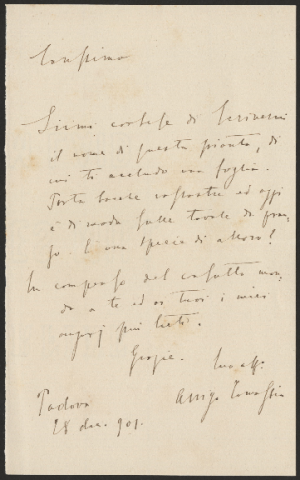 Carissimo
Siimi cortese di scrivermi
il nome di questa pianta, di
cui ti accludo una foglia.
Porta bacche rossastre ed oggi
è di moda sulle tavole di pran-
zo. È una specie di alloro?
In compenso del disturbo man-
do a te ed ai tuoi i miei
augurj più lieti.
Grazie. tuo aff.
Padova Arrigo
28 dic. 901.